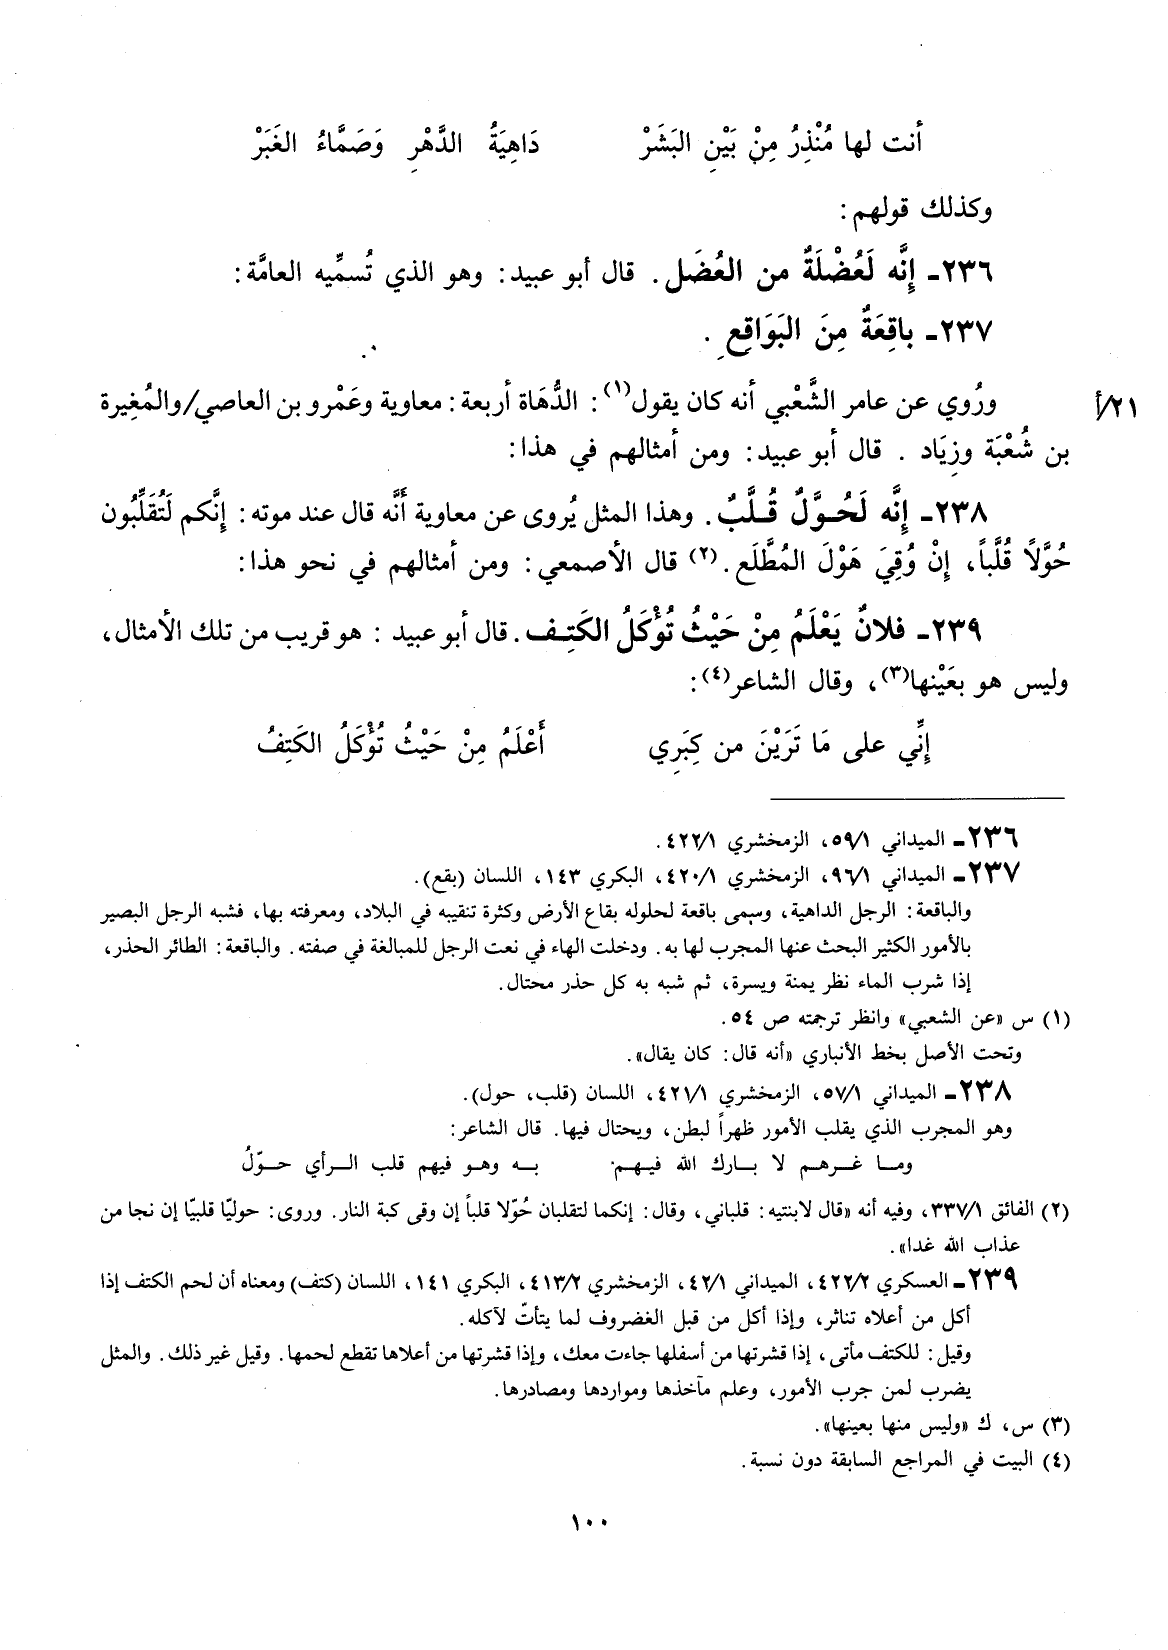 أنت لها مُنْذِرُ مِنْ بَيْنِ البَشَرْ دَاهِيَةُ الدَّهْرِ وَصَمَّاءُ الغَبَرْ
وكذلك قولهم:
٢٣٦ـ إِنَّه لَعُضْلَةٌ من العُضَل. قال أبو عبيد: وهو الذي تُسمِّيه العامَّة:
٢٣٧ـ باقِعَةٌ مِنَ البَوَاقِعِ.
ورُوي عن عامر الشَّعْبي أنه كان يقول(١): الدُّهَاة أربعة: معاوية وعَمْرو بن العاصي/والمُغِيرة ٢١/أ
بن شُعْبَة وزِيَاد . قال أبو عبيد: ومن أمثالهم في هذا:
٢٣٨ـ إِنَّه لَحُوَّلٌ قُلَّبٌ. وهذا المثل يُروى عن معاوية أنَّه قال عند موته: إِنَّكم لَتُقَلِّبُون
حُوَّلاً قُلَّباً، إِنْ وُقِيَ هَوْلَ المُطَّلَع.(٢) قال الأصمعي: ومن أمثالهم في نحو هذا:
٢٣٩ـ فلانٌ يَعْلَمُ مِنْ حَيْثُ تُؤْكَلُ الكَتِف. قال أبو عبيد : هو قريب من تلك الأمثال،
وليس هو بعَيْنها(٣)، وقال الشاعر(٤):
إِنِّي على مَا تَرَيْنَ من كِبَرِي أَعْلَمُ مِنْ حَيْثُ تُؤْكَلُ الكَتِفُ
٢٣٦ـ الميداني ٥٩/١، الزمخشري ٤٢٢/١.
٢٣٧ـ الميداني ٩٦/١، الزمخشري ٤٢٠/١، البكري ١٤٣، اللسان (بقع).
والباقعة: الرجل الداهية، وسمى باقعة لحلوله بقاع الأرض وكثرة تنقيبه في البلاد، ومعرفته بها، فشبه الرجل البصير
بالأمور الكثير البحث عنها المجرب لها به. ودخلت الهاء في نعت الرجل للمبالغة في صفته. والباقعة: الطائر الحذر،
إذا شرب الماء نظر يمنة ويسرة، ثم شبه به كل حذر محتال.
(١) س «عن الشعبي» وانظر ترجمته ص ٥٤.
وتحت الأصل بخط الأنباري «أنه قال: كان يقال».
٢٣٨ـ الميداني ٥٧/١، الزمخشري ٤٢١/١، اللسان (قلب، حول).
وهو المجرب الذي يقلب الأمور ظهراً لبطن، ويحتال فيها. قال الشاعر:
ومـا غـرهـم لا بـارك الله فيـهـم بـه وهـو فيهم قلب الـرأي حـوّلُ
(٢) الفائق ٣٣٧/١، وفيه أنه «قال لابنتيه: قلباني، وقال: إنكما لتقلبان حُوّلا قلباً إن وقى كبة النار. وروى: حوليّا قلبيّا إن نجا من
عذاب الله غدا».
٢٣٩ـ العسكري ٤٢٢/٢، الميداني ٤٢/١، الزمخشري ٤١٣/٢، البكري ١٤١، اللسان (كتف) ومعناه أن لحم الكتف إذا
أكل من أعلاه تناثر، وإذا أكل من قبل الغضروف لما يتأتّ لآكله.
وقيل: للكتف مأتى، إذا قشرتها من أسفلها جاءت معك، وإذا قشرتها من أعلاها تقطع لحمها. وقيل غير ذلك. والمثل
يضرب لمن جرب الأمور، وعلم مآخذها ومواردها ومصادرها.
(٣) س، ك «وليس منها بعينها».
(٤) البيت في المراجع السابقة دون نسبة.
١٠٠